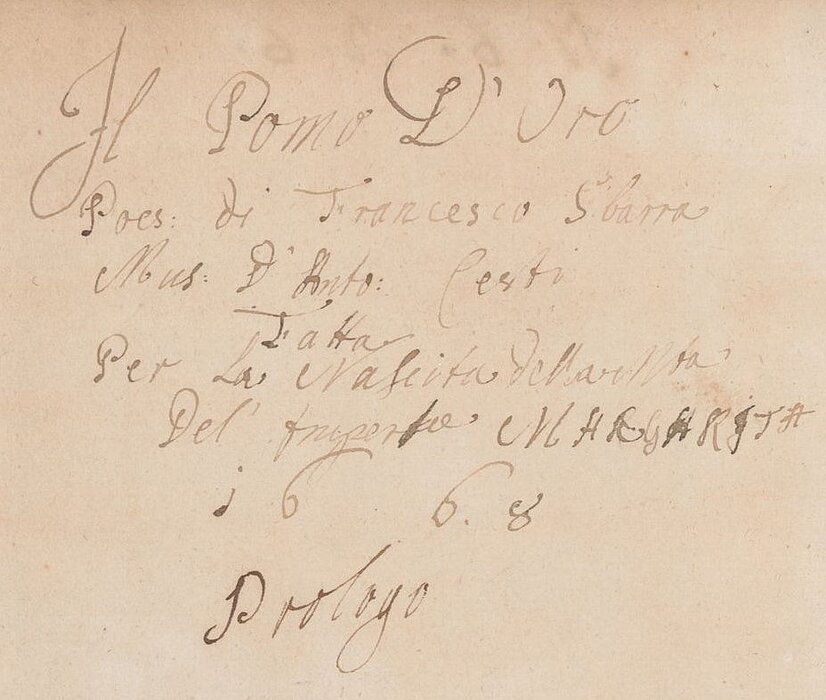 Il Pomo D'Oro
Poes: di Francesco Sbarra
Mus: D'Anto: Cesti
Fatta
Per La Nascita della Mta
Del' Imperce MARGARITA
1 6 6. 8
Prologo